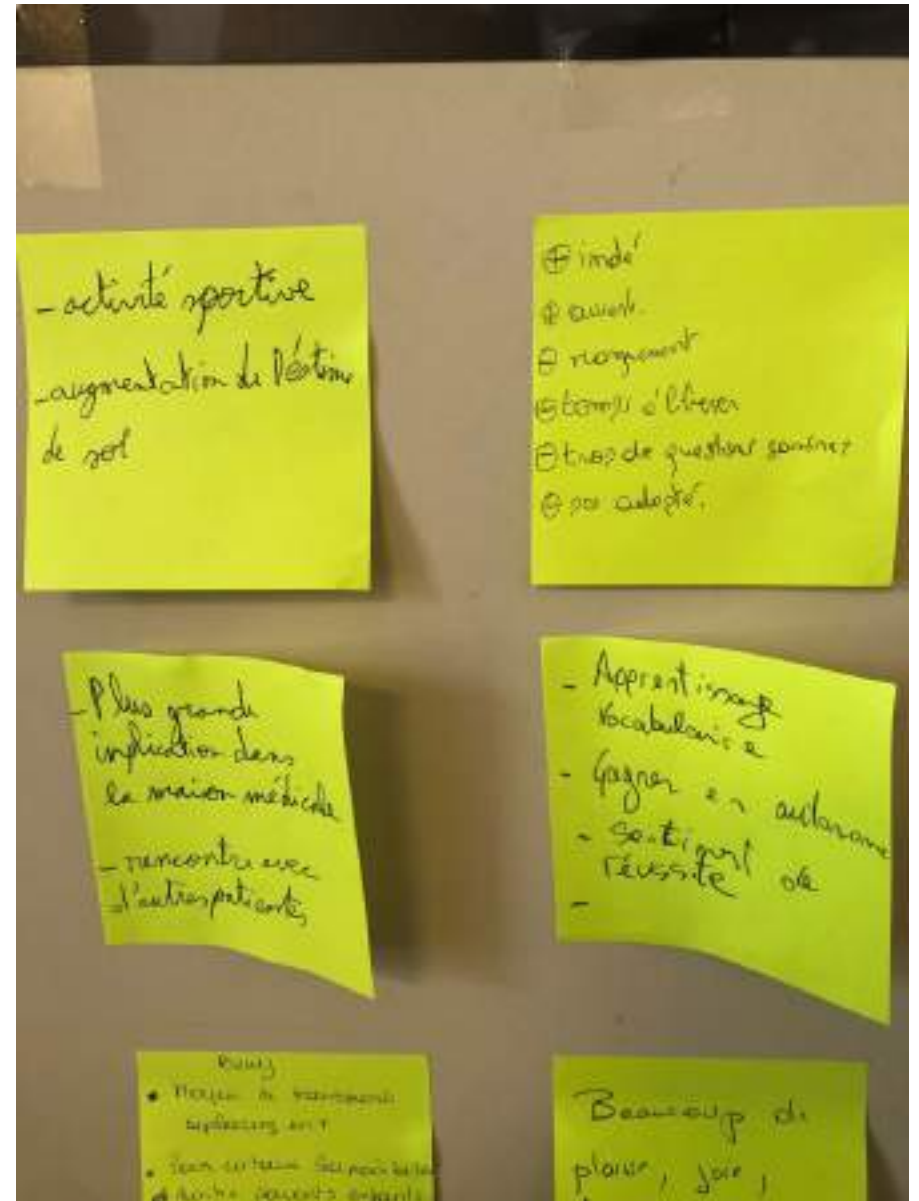 - activité sportive
- augmentation de l'éstime
de soi
⊕ indé
⊕ ouvert.
⊖
⊖ temps à libérer
⊖ trop de questions
⊖ pas adapté.
- Plus grande
implication dans
la maison médicale
- rencontre avec
d'autres patientes
- Apprentissage
Vocabulaire
- Gagner en autonomie
- Sentiment de
réussite
-
• Moyen de
•
parents enfants
Beaucoup de
plaisir, joie,